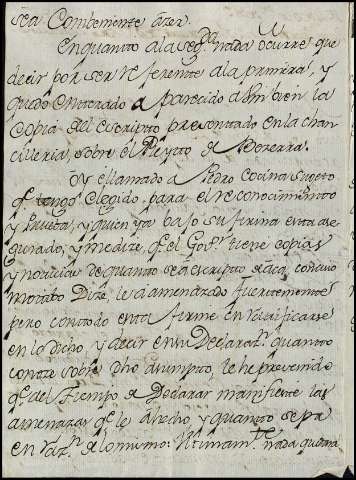 sea Combeniente âzer.
En quanto a la seg.da nada ocurre que
decir por ser referente a la primera, y
quedo enterado a parecido a Vm bien la
Copia del escripto presentado en la chan
cilleria, sobre el Pleyto de Bezerra.
Oy e llamado a Pedro Cocina Sugeto
q.e tengo elegido para el reconocimiento
y Prueba, y quien ya bajo su firma esta ase
gurado, y me dize, q.e el Gov.r tiene copias
y noticias de quanto se a escripto
motibo Dize, le a amenazado fuertemente
pero con todo esta firme en ratificarse
en lo dicho, y decir en su Declaraz.n quanto
conoze sobre dho asumpto, le he prevenido
q.e al Tiempo de Declarar manifieste las
amenazas q.e le â hecho, y quanto sepa
en raz.n de lo mismo: Ultimam.te nada